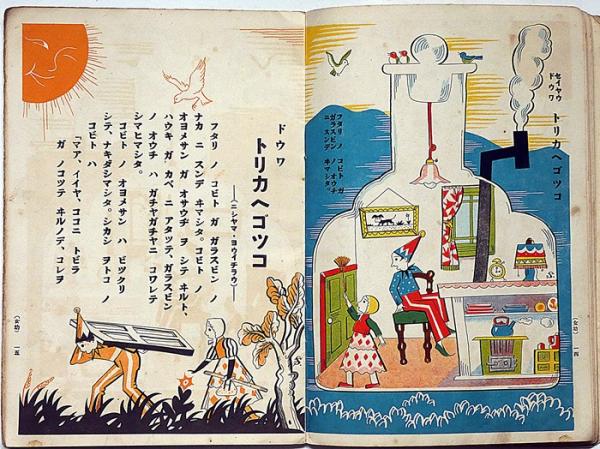 セイヤウ
ドウワ
トリカヘゴツコ
フタリ ノ コビト ガ
ガラスビン ノ オウチ
ニ スンデ ヰマシタ。
(女幼) 一四
ドウワ
トリカヘゴツコ
―(ニシヤマ・ヨウイチラウ)―
フタリ ノ コビト ガ ガラスビン ノ
ナカ ニ スンデ ヰマシタ。コビト ノ
オヨメサン ガ オサウヂ ヲ シテ ヰルト、
ハウキ ガ カベ ニ アタツテ、ガラスビン
ノ オウチ ハ ガチヤガチヤニ コワレテ
シマヒマシタ。
コビト ノ オヨメサン ハ ビツクリ
シテ、ナキダシマシタ。シカシ ヲトコ ノ
コビト ハ
「マア、イイヤ、ココニ トビラ
ガ ノコツテ ヰルノデ、コレヲ
(女幼) 一五